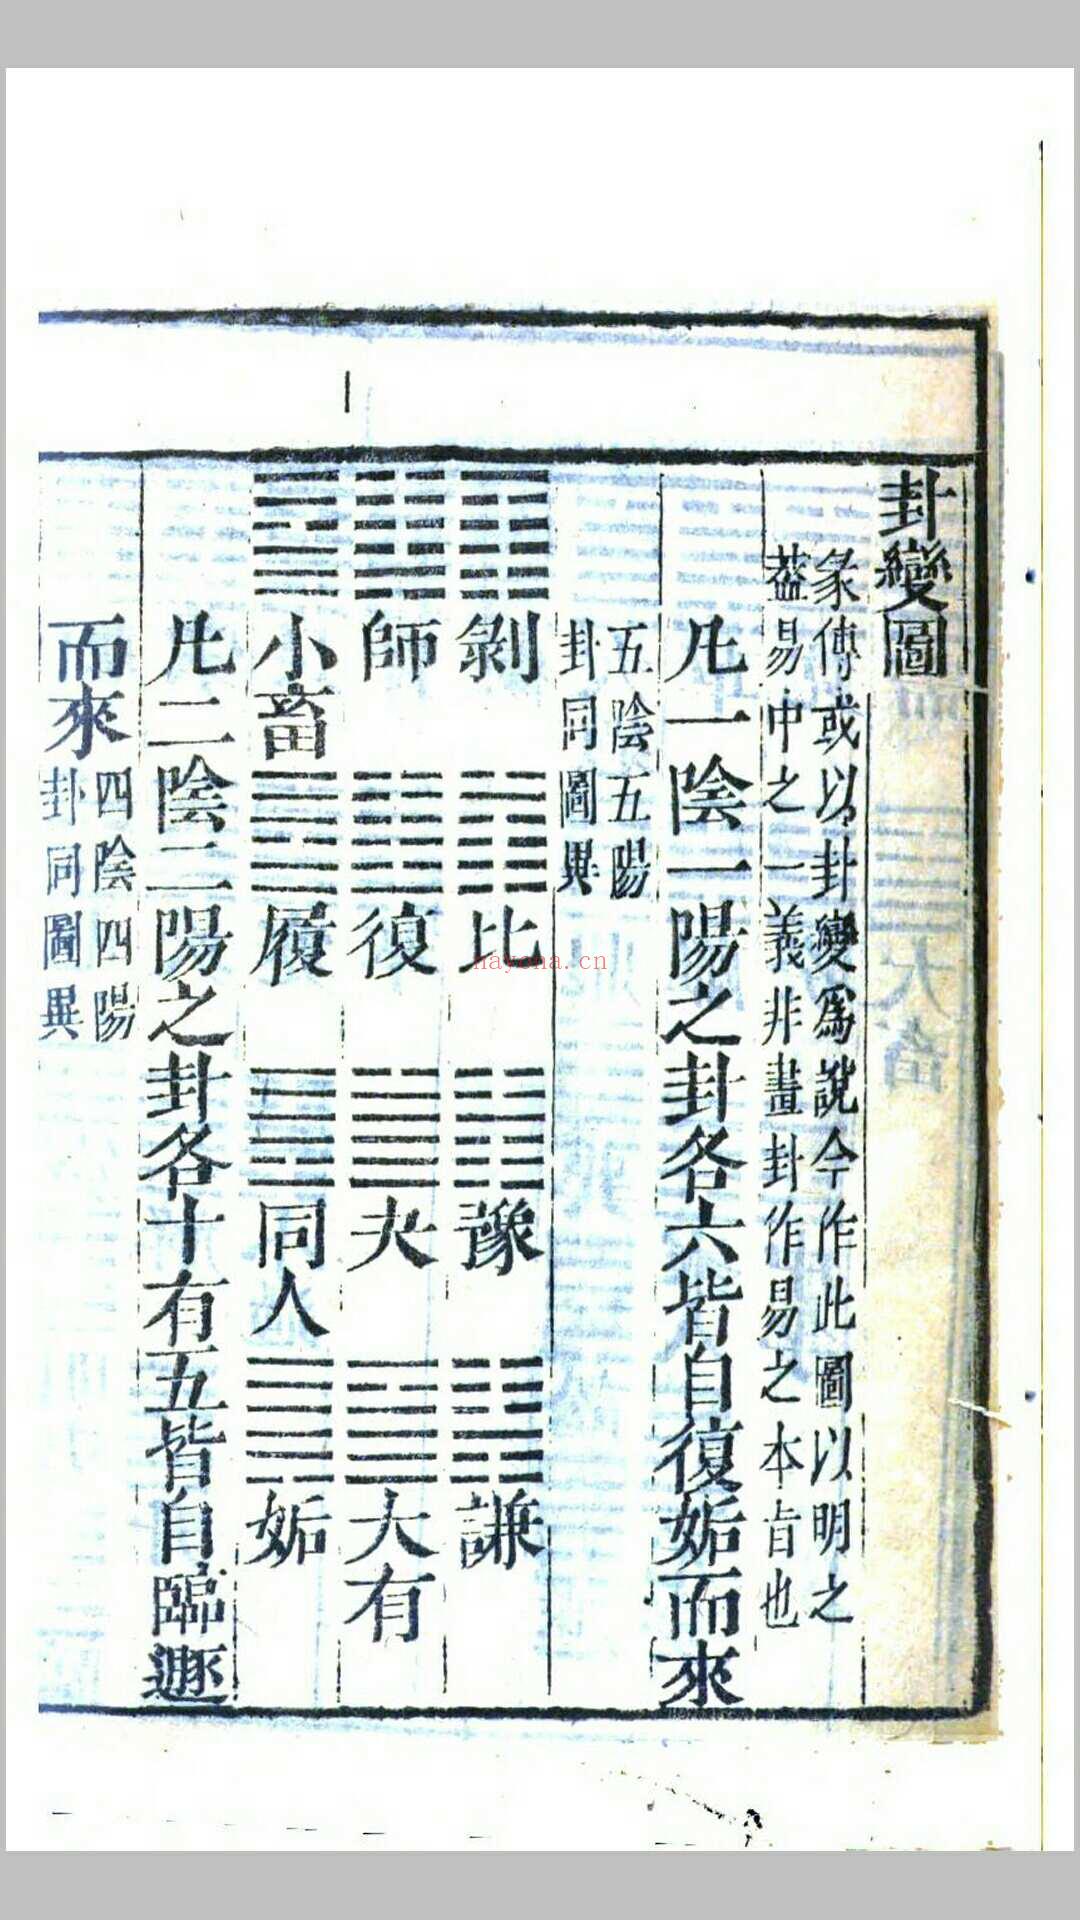 卦變圖
彖傳或以卦變爲說今作此圖以明之
葢易中之一義非畫卦作易之本旨也
凡一陰一陽之卦各六皆自復姤而來
五陰五陽
卦同圖異
剝 比 豫 謙
師 復 夬 大有
小畜 履 同人 姤
凡二陰二陽之卦各十有五皆自臨遯
而來
四陰四陽
卦同圖異
nayona.cn